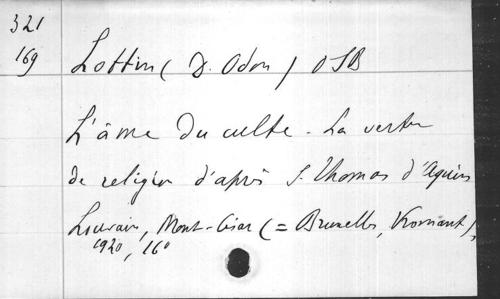 321
169
Lottin (D. Odon) OSB
L'âme du culte - La vertu
de religion d'après S. Thomas d'Aquin
Louvain, Mont-César (= Bruxelles, Vromant),
1920, 16°